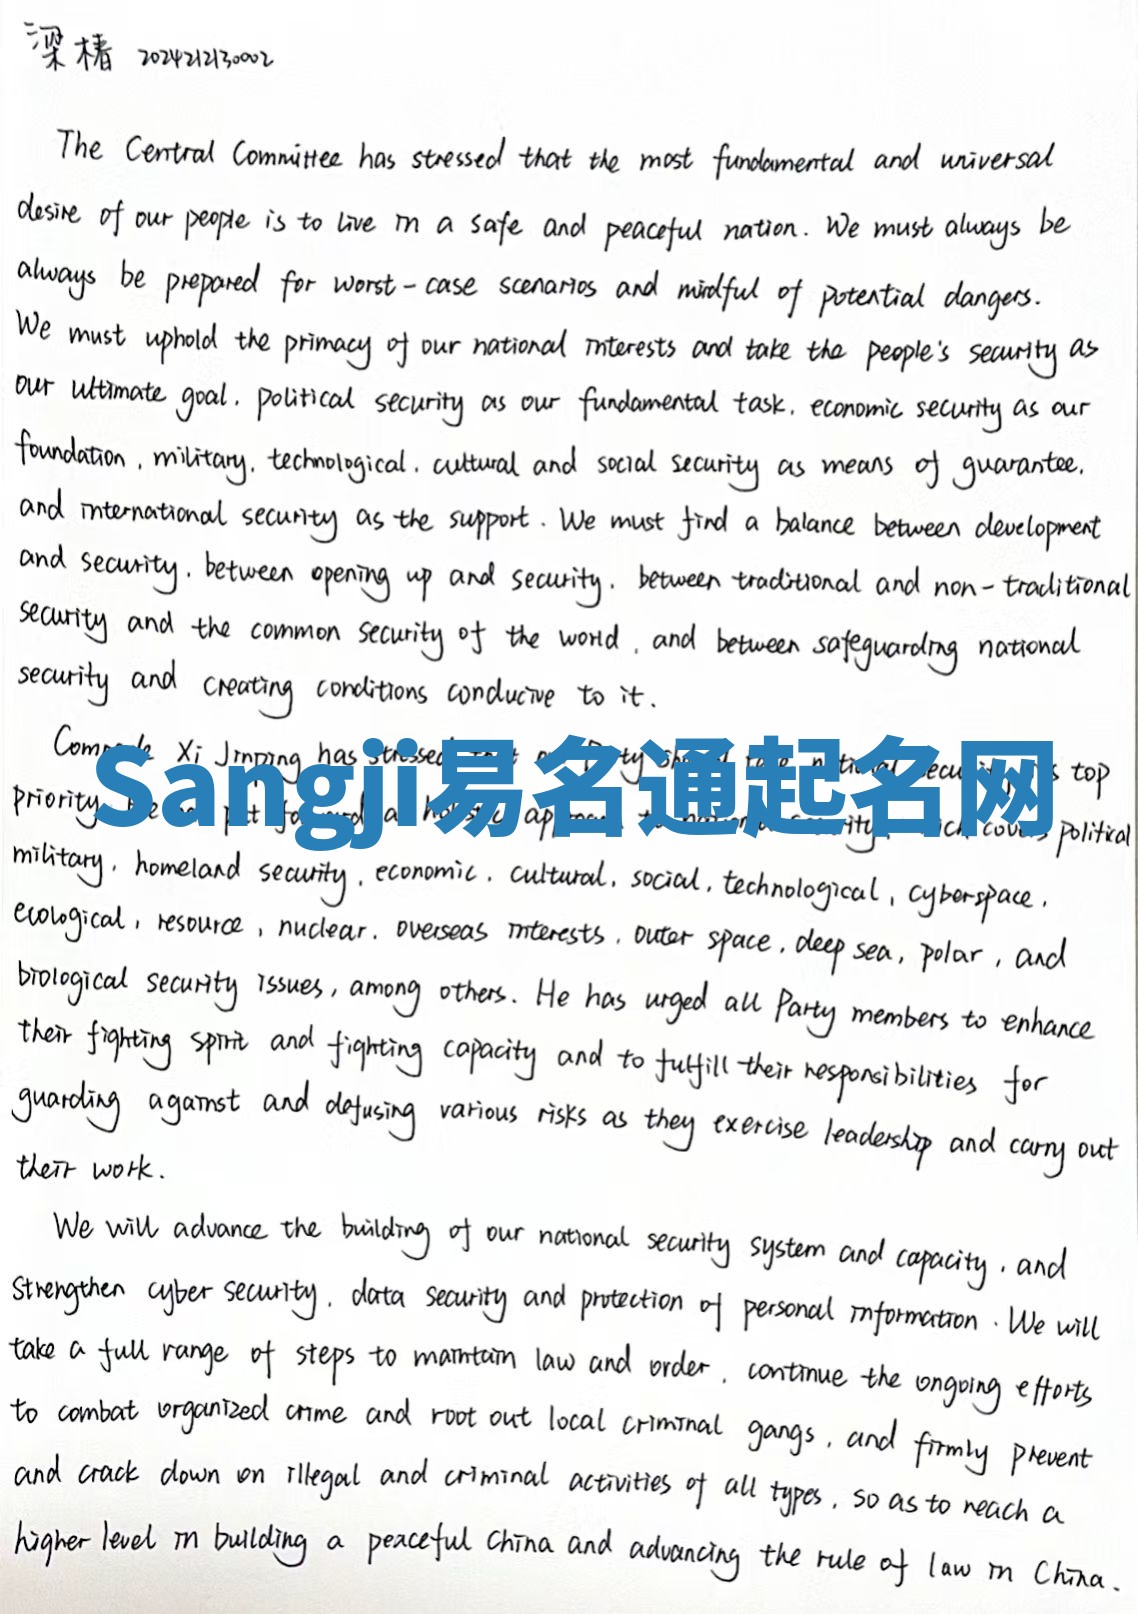 梁椿 2024212130002
The Central Committee has stressed that the most fundamental and universal
desire of our people is to live in a safe and peaceful nation. We must always be
always be prepared for worst-case scenarios and mindful of potential dangers.
We must uphold the primacy of our national interests and take the people's security as
our ultimate goal, political security as our fundamental task, economic security as our
foundation, military, technological, cultural and social security as means of guarantee,
and international security as the support. We must find a balance between development
and security, between opening up and security, between traditional and non-traditional
security and the common security of the world, and between safeguarding national
security and creating conditions conducive to it.
Comrade Xi Jinping has stressed Party national top
Sangji易名通起名网
priority a covers political
military, homeland security, economic, cultural, social, technological, cyberspace,
ecological, resource, nuclear, overseas interests, outer space, deep sea, polar, and
biological security issues, among others. He has urged all Party members to enhance
their fighting spirit and fighting capacity and to fulfill their responsibilities for
guarding against and defusing various risks as they exercise leadership and carry out
their work.
We will advance the building of our national security system and capacity, and
strengthen cyber security, data security and protection of personal information. We will
take a full range of steps to maintain law and order, continue the ongoing efforts
to combat organized crime and root out local criminal gangs, and firmly prevent
and crack down on illegal and criminal activities of all types, so as to reach a
higher level in building a peaceful China and advancing the rule of law in China.